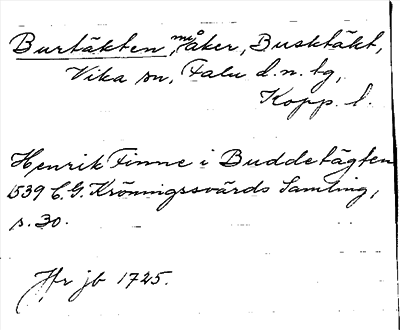 Burtäkten, mé åker, Busktäkt,
Vika sn, Falu d.n. tg,
Kopp. l.
Henrik Finne i Buddetägten
1539 C.G. Krönnigssvärds Samling,
s. 30.
Hr jb 1725.